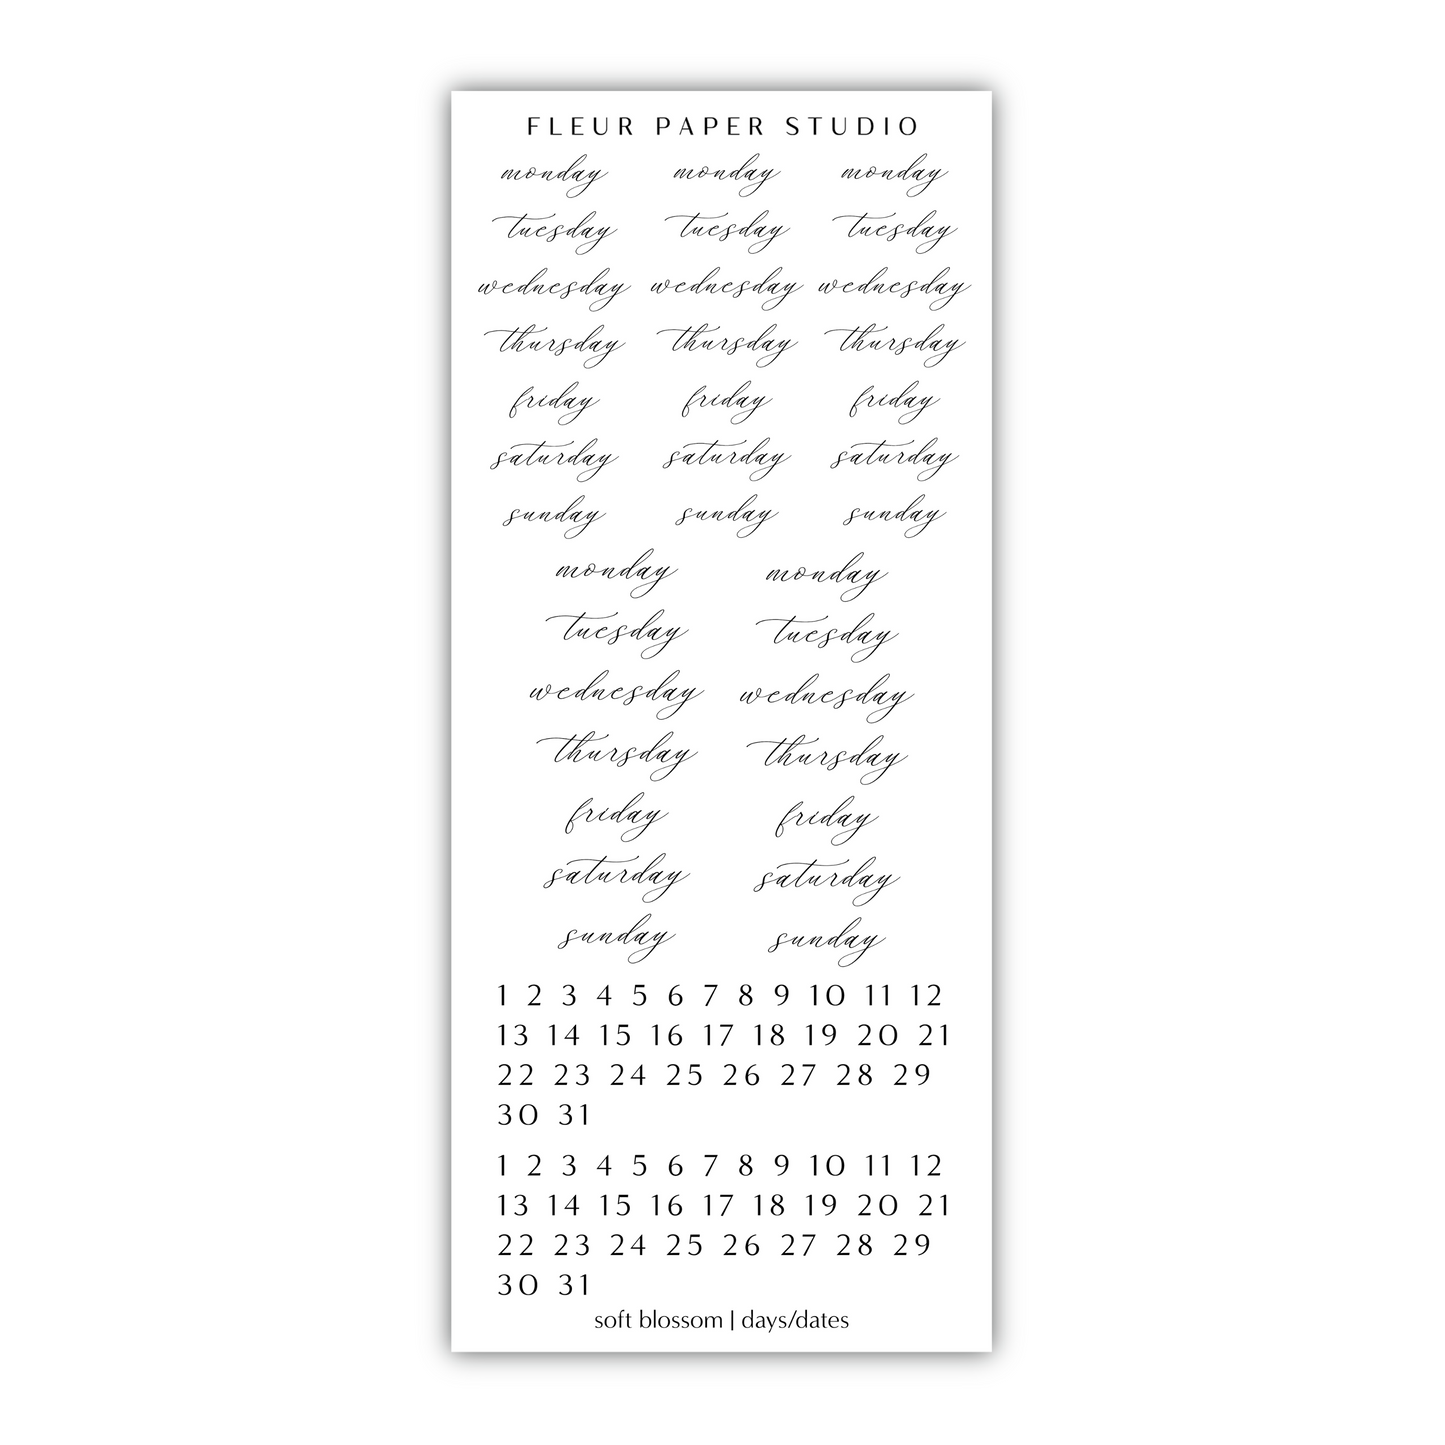 FLEUR PAPER STUDIO
monday monday monday
tuesday tuesday tuesday
wednesday wednesday wednesday
thursday thursday thursday
friday friday friday
saturday saturday saturday
sunday sunday sunday
monday monday
tuesday tuesday
wednesday wednesday
thursday thursday
friday friday
saturday saturday
sunday sunday
1 2 3 4 5 6 7 8 9 10 11 12
13 14 15 16 17 18 19 20 21
22 23 24 25 26 27 28 29
30 31
1 2 3 4 5 6 7 8 9 10 11 12
13 14 15 16 17 18 19 20 21
22 23 24 25 26 27 28 29
30 31
soft blossom | days/dates